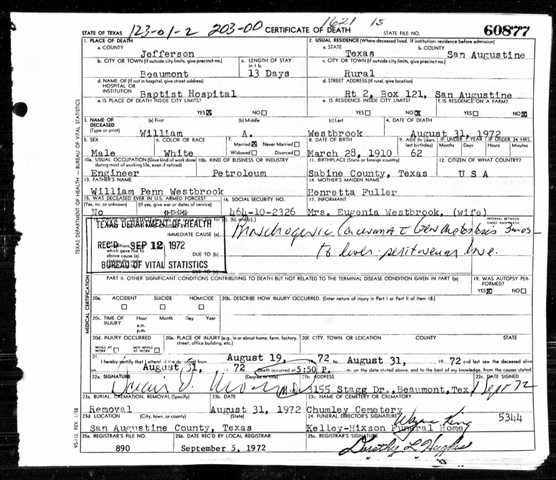 1621 15
STATE OF TEXAS 123-01-2 203-00 CERTIFICATE OF DEATH STATE FILE NO. 60877
1. PLACE OF DEATH 2. USUAL RESIDENCE (Where deceased lived. If institution: residence before admission)
a. COUNTY a. STATE b. COUNTY
Jefferson Texas San Augustine
b. CITY OR TOWN (If outside city limits, give precinct no.) c. LENGTH OF STAY c. CITY OR TOWN (If outside city limits, give precinct no.)
Beaumont 13 Days Rural
d. NAME OF (If not in hospital, give street address) d. STREET ADDRESS (If rural, give location)
HOSPITAL OR
INSTITUTION Baptist Hospital Rt 2, Box 121, San Augustine
e. IS PLACE OF DEATH INSIDE CITY LIMITS? e. IS RESIDENCE INSIDE CITY LIMITS? f. IS RESIDENCE ON A FARM?
YES NO YES NO YES NO
3. NAME OF DECEASED (a) First (b) Middle (c) Last 4. DATE OF DEATH
(Type or print) William A. Westbrook August 31, 1972
5. SEX 6. COLOR OR RACE 7. Married Never Married 8. DATE OF BIRTH 9. AGE
Male White Widowed Divorced March 28, 1910 62
10a. USUAL OCCUPATION 10b. KIND OF BUSINESS OR INDUSTRY 11. BIRTHPLACE (State or foreign country) 12. CITIZEN OF WHAT COUNTRY?
Engineer Petroleum Sabine County, Texas U S A
13. FATHER'S NAME 14. MOTHER'S MAIDEN NAME
William Penn Westbrook Henretta Fuller
15. WAS DECEASED EVER IN U.S. ARMED FORCES? 16. SOCIAL SECURITY NO. 17. INFORMANT
No 464-10-2326 Mrs. Eugenia Westbrook, (wife)
TEXAS DEPARTMENT OF HEALTH
IMMEDIATE CAUSE (a)
REC'D SEP 12 1972
DUE TO (b)
to liver, peritoneum
BUREAU OF VITAL STATISTICS
PART II. OTHER SIGNIFICANT CONDITIONS CONTRIBUTING TO DEATH BUT NOT RELATED TO THE TERMINAL DISEASE CONDITION GIVEN IN PART I(a) 19. WAS AUTOPSY PERFORMED?
YES NO
20a. ACCIDENT SUICIDE HOMICIDE 20b. DESCRIBE HOW INJURY OCCURRED. (Enter nature of injury in Part I or Part II of item 18)
20c. TIME OF INJURY Hour Month Day Year
a.m.
p.m.
20d. INJURY OCCURRED 20e. PLACE OF INJURY (e.g., in or about home, farm, factory, street, office building, etc.) 20f. CITY, TOWN, OR LOCATION COUNTY STATE
21. I hereby certify that I attended the deceased from August 19, 72 to August 31, 72 and last saw the deceased alive
on August 31, 72 Death occurred at 5:50 P. m. on the date stated above, and to the best of my knowledge, from the causes stated.
22a. SIGNATURE (Degree or title) 22b. ADDRESS 22c. DATE SIGNED
M.D. 3155 Stagg Dr., Beaumont, Tex
23a. BURIAL, CREMATION, REMOVAL (Specify) 23b. DATE 23c. NAME OF CEMETERY OR CREMATORY
Removal August 31, 1972 Chumley Cemetery
23d. LOCATION (City, town, or county) (State) 24. FUNERAL DIRECTOR'S SIGNATURE Wayne King 5344
San Augustine County, Texas Kelley-Hixson Funeral Home
25a. REGISTRAR'S FILE NO. 25b. DATE REC'D BY LOCAL REGISTRAR 25c. REGISTRAR'S SIGNATURE
890 September 5, 1972 Dorothy L Hughes
TEXAS DEPARTMENT OF HEALTH — BUREAU OF VITAL STATISTICS
MEDICAL CERTIFICATION